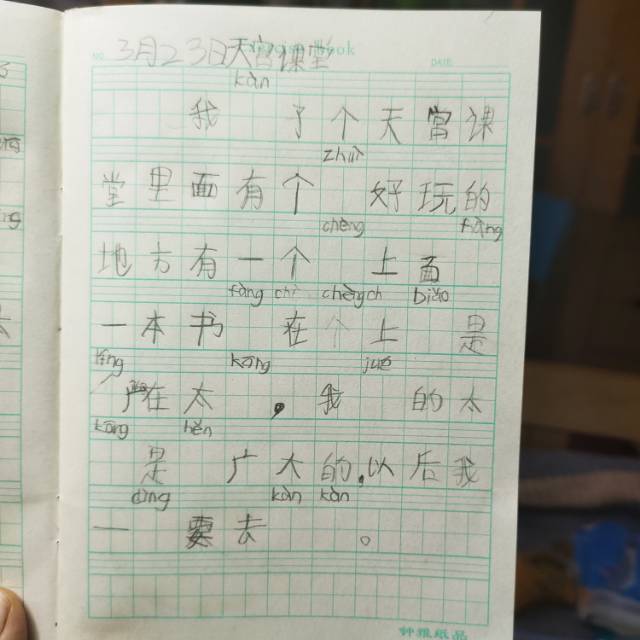 3月23日天宫课堂
kàn
我 了个天宫课
zhuì
堂里面有个 好玩的
chèng hǎng
地方有一个 上面
fàng chèng biǎo
一本书 在个上 是
líng kōng jué
在太 ,我 的太
kōng hěn
是 广大的,以后我
dìng kàn kàn
一 要去 。
钟雅纸品